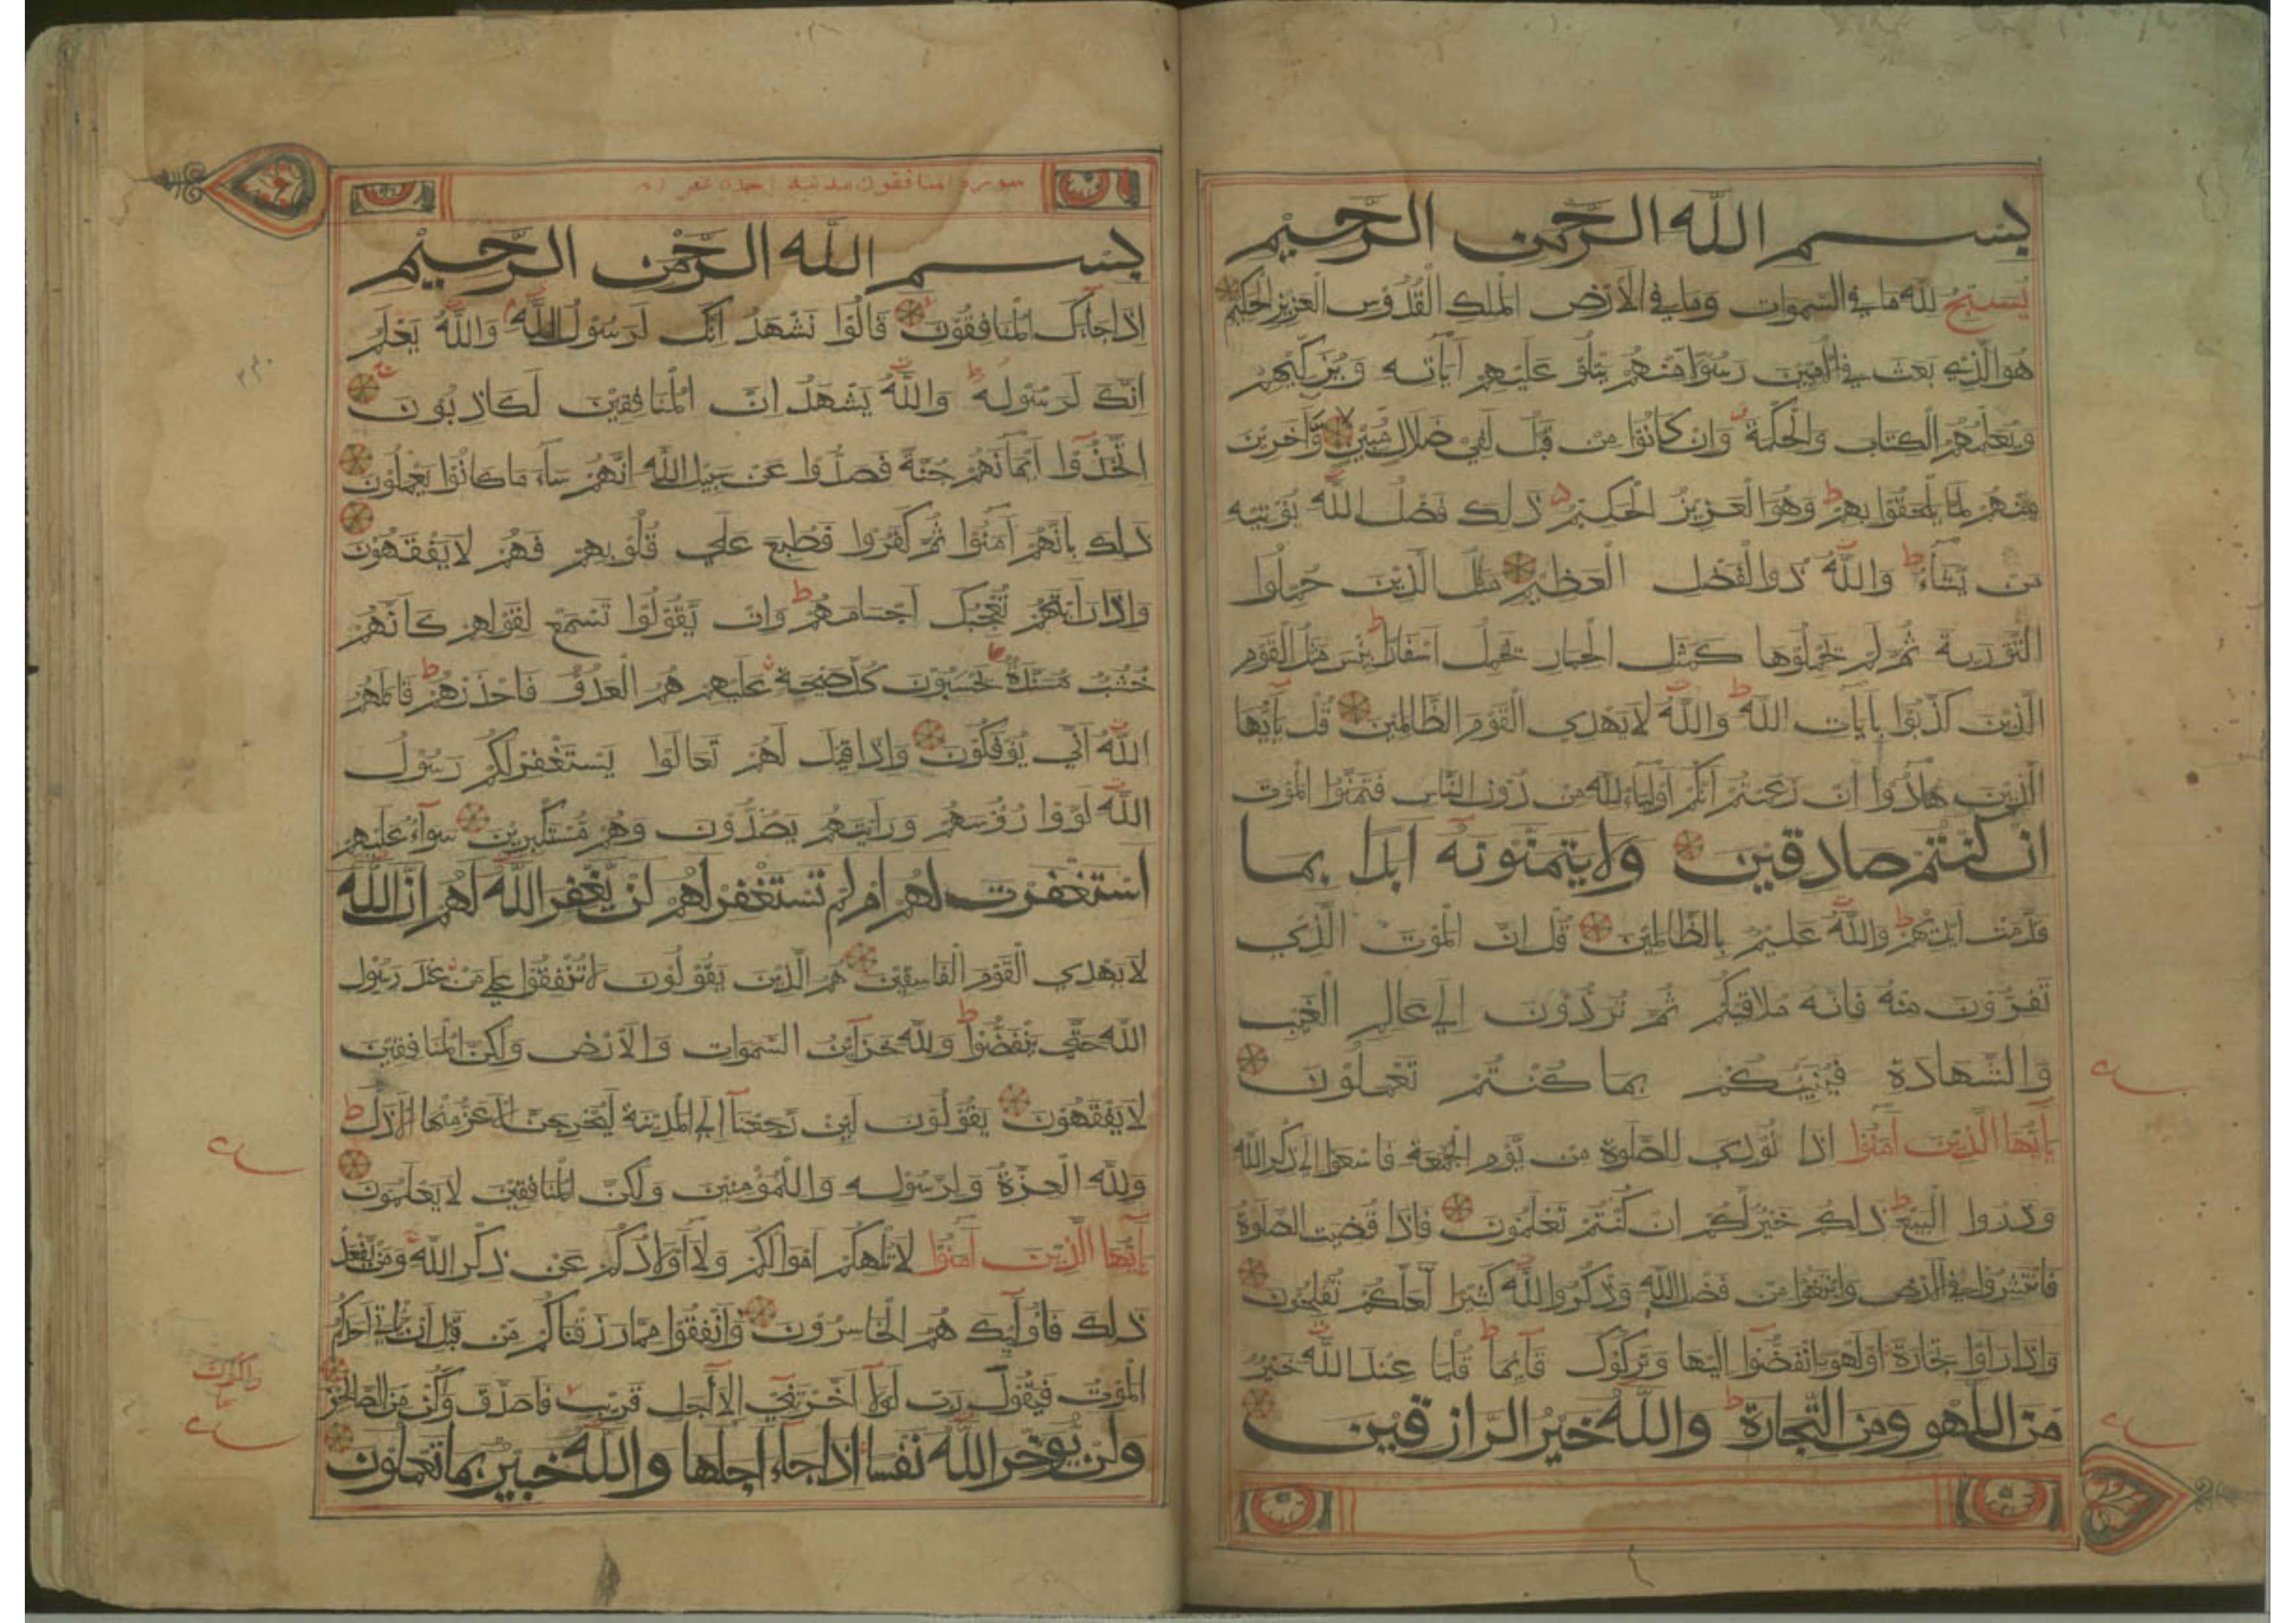 بسم الله الرحمن الرحيم
يُسَبِّحُ لِلّه مَا فِي السَّمواتِ وَمَا فِي الأَرْضِ الْمَلِكِ الْقُدُّوْسِ الْعَزِيزِ الْحَكِيْمِ
هُوَ الَّذِي بَعَثَ فِي الأُمِّيّنَ رَسُوْلًا مِّنْهُمْ يَتْلُوْ عَلَيْهِمْ آيَاتِه وَيُزَكِّيْهِمْ
وَيُعَلِّمُهُمُ الْكِتَابَ وَالْحِكْمَةَ وَاِنْ كَانُوْا مِنْ قَبْلُ لَفِيْ ضَلَالٍ مُّبِيْنٍ وَّآخَرِيْنَ
مِنْهُمْ لَمَّا يَلْحَقُوْا بِهِمْ ط وَهُوَ الْعَزِيْزُ الْحَكِيْمُ ذلِكَ فَضْلُ اللّهِ يُؤْتِيْهِ
مَنْ يَّشَآءُ ط وَاللّهُ ذُو الْفَضْلِ الْعَظِيْمِ مَثَلُ الَّذِيْنَ حُمِّلُوا
التَّوْرَيةَ ثُمَّ لَمْ يَحْمِلُوْهَا كَمَثَلِ الْحِمَارِ يَحْمِلُ اَسْفَارًا ط بِئْسَ مَثَلُ الْقَوْمِ
الَّذِيْنَ كَذَّبُوْا بِآيَاتِ اللّهِ ط وَاللّهُ لَا يَهْدِي الْقَوْمَ الظَّالِمِيْنَ قُلْ يَآاَيُّهَا
الَّذِيْنَ هَادُوْا اِنْ زَعَمْتُمْ اَنَّكُمْ اَوْلِيَآءُ لِلّهِ مِنْ دُوْنِ النَّاسِ فَتَمَنَّوُا الْمَوْتَ
اِنْ كُنْتُمْ صَادِقِيْنَ وَلَا يَتَمَنَّوْنَهُ اَبَدًا بِمَا
قَدَّمَتْ اَيْدِيْهِمْ ط وَاللّهُ عَلِيْمٌ بِالظَّالِمِيْنَ قُلْ اِنَّ الْمَوْتَ الَّذِي
تَفِرُّوْنَ مِنْهُ فَاِنَّهُ مُلَاقِيْكُمْ ثُمَّ تُرَدُّوْنَ اِلي عَالِمِ الْغَيْبِ
وَالشَّهَادَةِ فَيُنَبِّئُكُمْ بِمَا كُنْتُمْ تَعْمَلُوْنَ
يَآاَيُّهَا الَّذِيْنَ آمَنُوْا اِذَا نُوْدِيَ لِلصَّلوةِ مِنْ يَّوْمِ الْجُمُعَةِ فَاسْعَوْا اِلي ذِكْرِ اللّهِ
وَذَرُوا الْبَيْعَ ط ذلِكُمْ خَيْرٌ لَّكُمْ اِنْ كُنْتُمْ تَعْلَمُوْنَ فَاِذَا قُضِيَتِ الصَّلوةُ
فَانْتَشِرُوْا فِي الْاَرْضِ وَابْتَغُوْا مِنْ فَضْلِ اللّهِ وَاذْكُرُوا اللّهَ كَثِيْرًا لَّعَلَّكُمْ تُفْلِحُوْنَ
وَاِذَا رَاَوْا تِجَارَةً اَوْ لَهْوًا انْفَضُّوْا اِلَيْهَا وَتَرَكُوْكَ قَآئِمًا ط قُلْ مَا عِنْدَ اللّهِ خَيْرٌ
مِّنَ اللَّهْوِ وَمِنَ التِّجَارَةِ ط وَاللّهُ خَيْرُ الرَّازِقِيْنَ
سورة المنافقون مدنية احدى عشر
بسم الله الرحمن الرحيم
اِذَا جَآءَكَ الْمُنَافِقُوْنَ قَالُوْا نَشْهَدُ اِنَّكَ لَرَسُوْلُ اللّهِ وَاللّهُ يَعْلَمُ
اِنَّكَ لَرَسُوْلُه ط وَاللّهُ يَشْهَدُ اِنَّ الْمُنَافِقِيْنَ لَكَاذِبُوْنَ
اِتَّخَذُوْا اَيْمَانَهُمْ جُنَّةً فَصَدُّوْا عَنْ سَبِيْلِ اللّهِ اِنَّهُمْ سَآءَ مَا كَانُوْا يَعْمَلُوْنَ
ذلِكَ بِاَنَّهُمْ آمَنُوْا ثُمَّ كَفَرُوْا فَطُبِعَ عَلي قُلُوْبِهِمْ فَهُمْ لَا يَفْقَهُوْنَ
وَاِذَا رَاَيْتَهُمْ تُعْجِبُكَ اَجْسَامُهُمْ ط وَاِنْ يَّقُوْلُوْا تَسْمَعْ لِقَوْلِهِمْ كَاَنَّهُمْ
خُشُبٌ مُّسَنَّدَةٌ يَحْسَبُوْنَ كُلَّ صَيْحَةٍ عَلَيْهِمْ هُمُ الْعَدُوُّ فَاحْذَرْهُمْ ط قَاتَلَهُمُ
اللّهُ اَنّي يُؤْفَكُوْنَ وَاِذَا قِيْلَ لَهُمْ تَعَالَوْا يَسْتَغْفِرْ لَكُمْ رَسُوْلُ
اللّهِ لَوَّوْا رُؤُسَهُمْ وَرَاَيْتَهُمْ يَصُدُّوْنَ وَهُمْ مُّسْتَكْبِرِيْنَ سَوَآءٌ عَلَيْهِمْ
اَسْتَغْفَرْتَ لَهُمْ اَمْ لَمْ تَسْتَغْفِرْ لَهُمْ لَنْ يَّغْفِرَ اللّهُ لَهُمْ اِنَّ اللّهَ
لَا يَهْدِي الْقَوْمَ الْفَاسِقِيْنَ هُمُ الَّذِيْنَ يَقُوْلُوْنَ لَا تُنْفِقُوْا عَلي مَنْ عِنْدَ رَسُوْلِ
اللّهِ حَتّي يَنْفَضُّوْا ط وَلِلّهِ خَزَآئِنُ السَّموَاتِ وَالْاَرْضِ وَلكِنَّ الْمُنَافِقِيْنَ
لَا يَفْقَهُوْنَ يَقُوْلُوْنَ لَئِنْ رَّجَعْنَآ اِلَي الْمَدِيْنَةِ لَيُخْرِجَنَّ الْاَعَزُّ مِنْهَا الْاَذَلَّ ط
وَلِلّهِ الْعِزَّةُ وَلِرَسُوْلِه وَلِلْمُؤْمِنِيْنَ وَلكِنَّ الْمُنَافِقِيْنَ لَا يَعْلَمُوْنَ
يَآاَيُّهَا الَّذِيْنَ آمَنُوْا لَا تُلْهِكُمْ اَمْوَالُكُمْ وَلَآ اَوْلَادُكُمْ عَنْ ذِكْرِ اللّهِ وَمَنْ يَّفْعَلْ
ذلِكَ فَاُولئِكَ هُمُ الْخَاسِرُوْنَ وَاَنْفِقُوْا مِمَّا رَزَقْنَاكُمْ مِّنْ قَبْلِ اَنْ يَّاْتِيَ اَحَدَكُمُ
الْمَوْتُ فَيَقُوْلَ رَبِّ لَوْلَآ اَخَّرْتَنِيْ اِلي اَجَلٍ قَرِيْبٍ فَاَصَّدَّقَ وَاَكُنْ مِّنَ الصَّالِحِيْنَ
وَلَنْ يُّؤَخِّرَ اللّهُ نَفْسًا اِذَا جَآءَ اَجَلُهَا وَاللّهُ خَبِيْرٌ بِمَا تَعْمَلُوْنَ